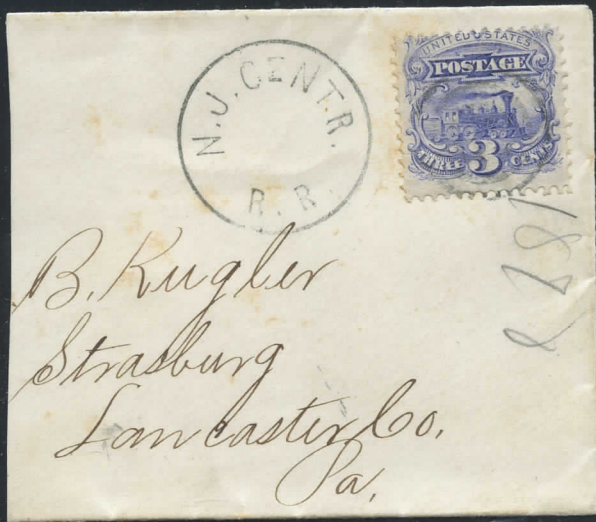 N.J. CENT. R.
R. R.
UNITED STATES
POSTAGE
THREE 3 CENTS
B. Kugler
Strasburg
Lancaster Co.
Pa.